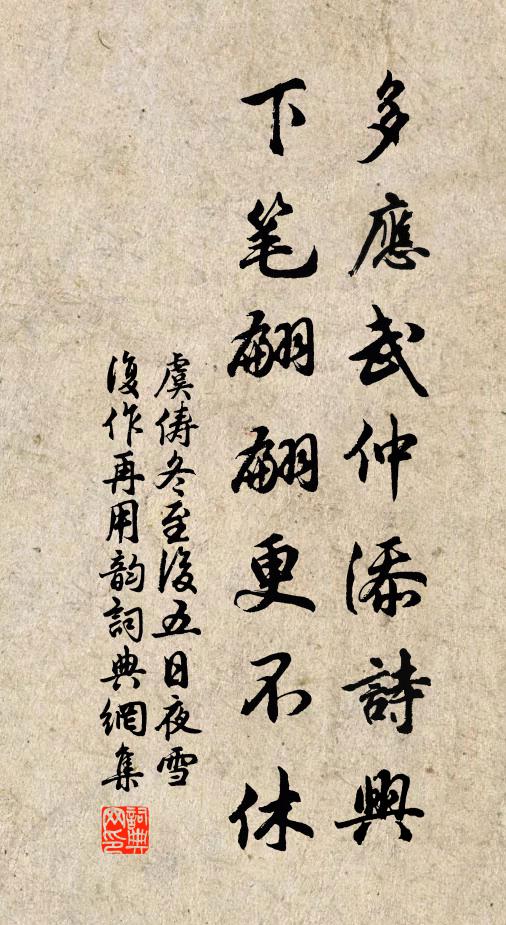 多應武仲添詩興
下笔翩翩更不休
虞儔冬至後五日夜雪
復作再用韵詞典網集
詞典
网印